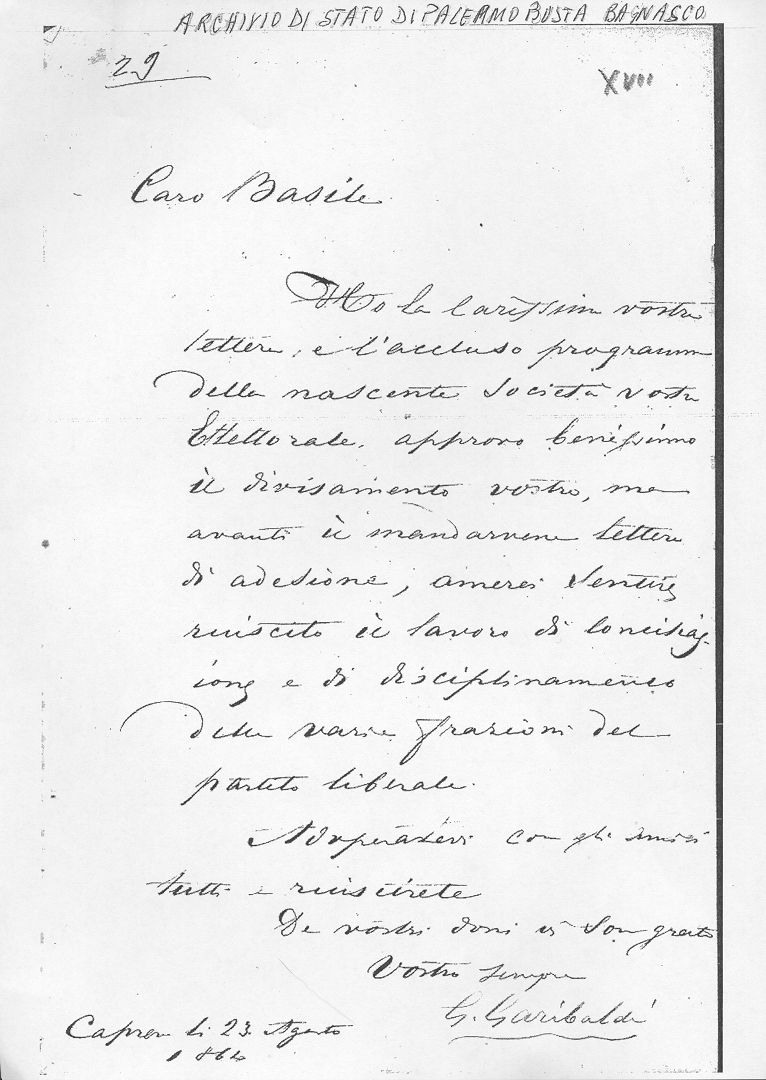 ARCHIVIO DI STATO DI PALERMO BUSTA BAGNASCO
29
XVII
Caro Basile
Ho la carissima vostra
lettera, e l'accluso programma
della nascente Società vostra
Elettorale. approvo benissimo
il divisamento vostro, ma
avanti di mandarvene lettera
di adesione, amerei sentire
riuscito il lavoro di conciliaz-
ione e di disciplinamento
delle varie frazioni del
partito liberale.
Adoperatevi con gli amici
tutti e riuscirete
De vostri doni vi son grato
Vostro sempre
G. Garibaldi
Caprera li 23 Agosto